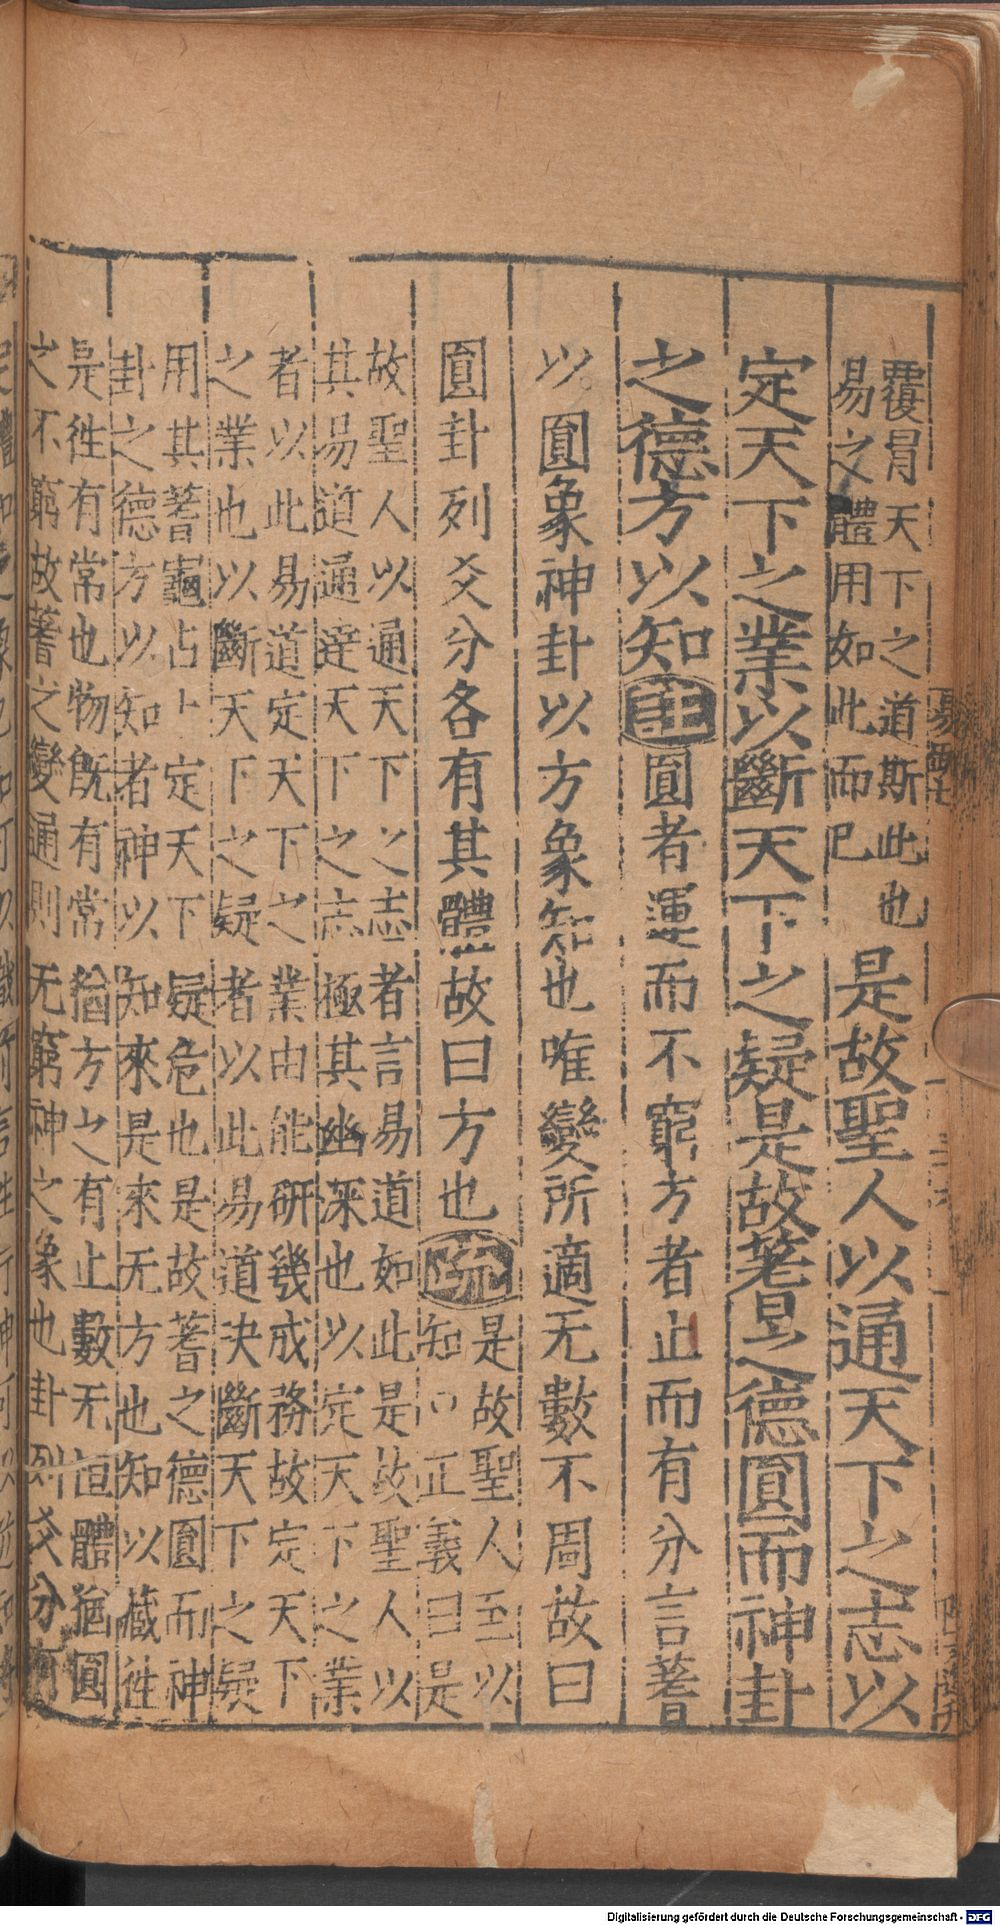 覆冒天下之道斯此也
易之體用如此而已
是故聖人以通天下之志以
定天下之業以斷天下之疑是故蓍之德圓而神卦
之德方以知
註
圓者運而不窮方者止而有分言蓍
以圓象神卦以方象知也唯變所適无數不周故曰
圓卦列爻分各有其體故曰方也
疏
是故聖人至以
知○正義曰是
故聖人以通天下之志者言易道如此是故聖人以
其易道通達天下之志極其幽深也以定天下之業
者以此易道定天下之業由能研幾成務故定天下
之業也以斷天下之疑者以此易道決斷天下之疑
用其蓍龜占卜定天下疑危也是故蓍之德圓而神
卦之德方以知者神以知來是來无方也知以藏往
是往有常也物既有常猶方之有止數无恒體猶圓
之不窮故蓍之變通則无窮神之象也卦列爻分有
Digitalisierung gefördert durch die Deutsche Forschungsgemeinschaft - DFG